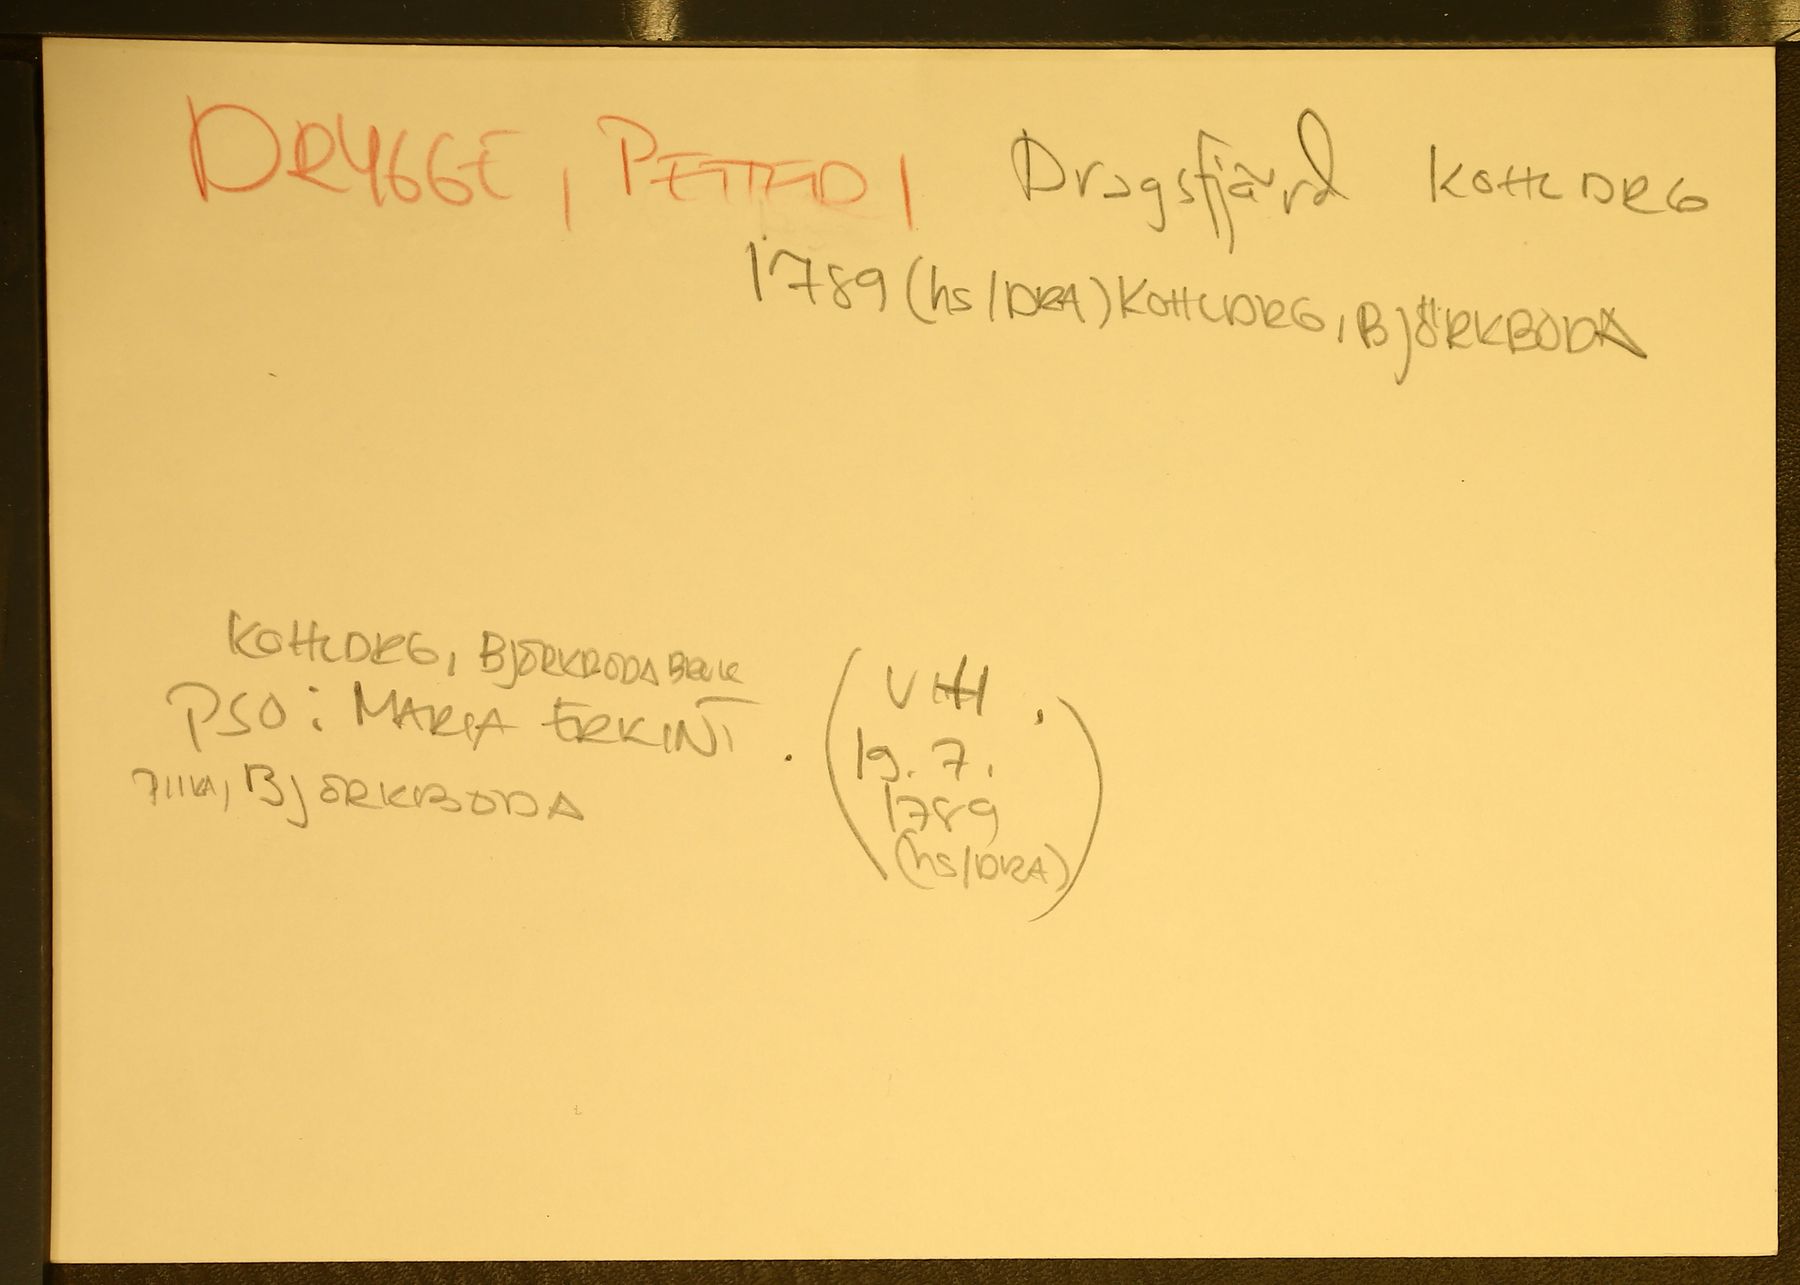 DRYGGE, PETTER, Dragsfjärd KOHLDRG
1789 (hs/DRA) KOHLDRG, BJÖRKBODA
KOHLDRG, BJÖRKBODA BRUK
PSO: MARIA ERKINT.
PIIKA, BJÖRKBODA
(VIH.
19.7.
1789
(hs/DRA))